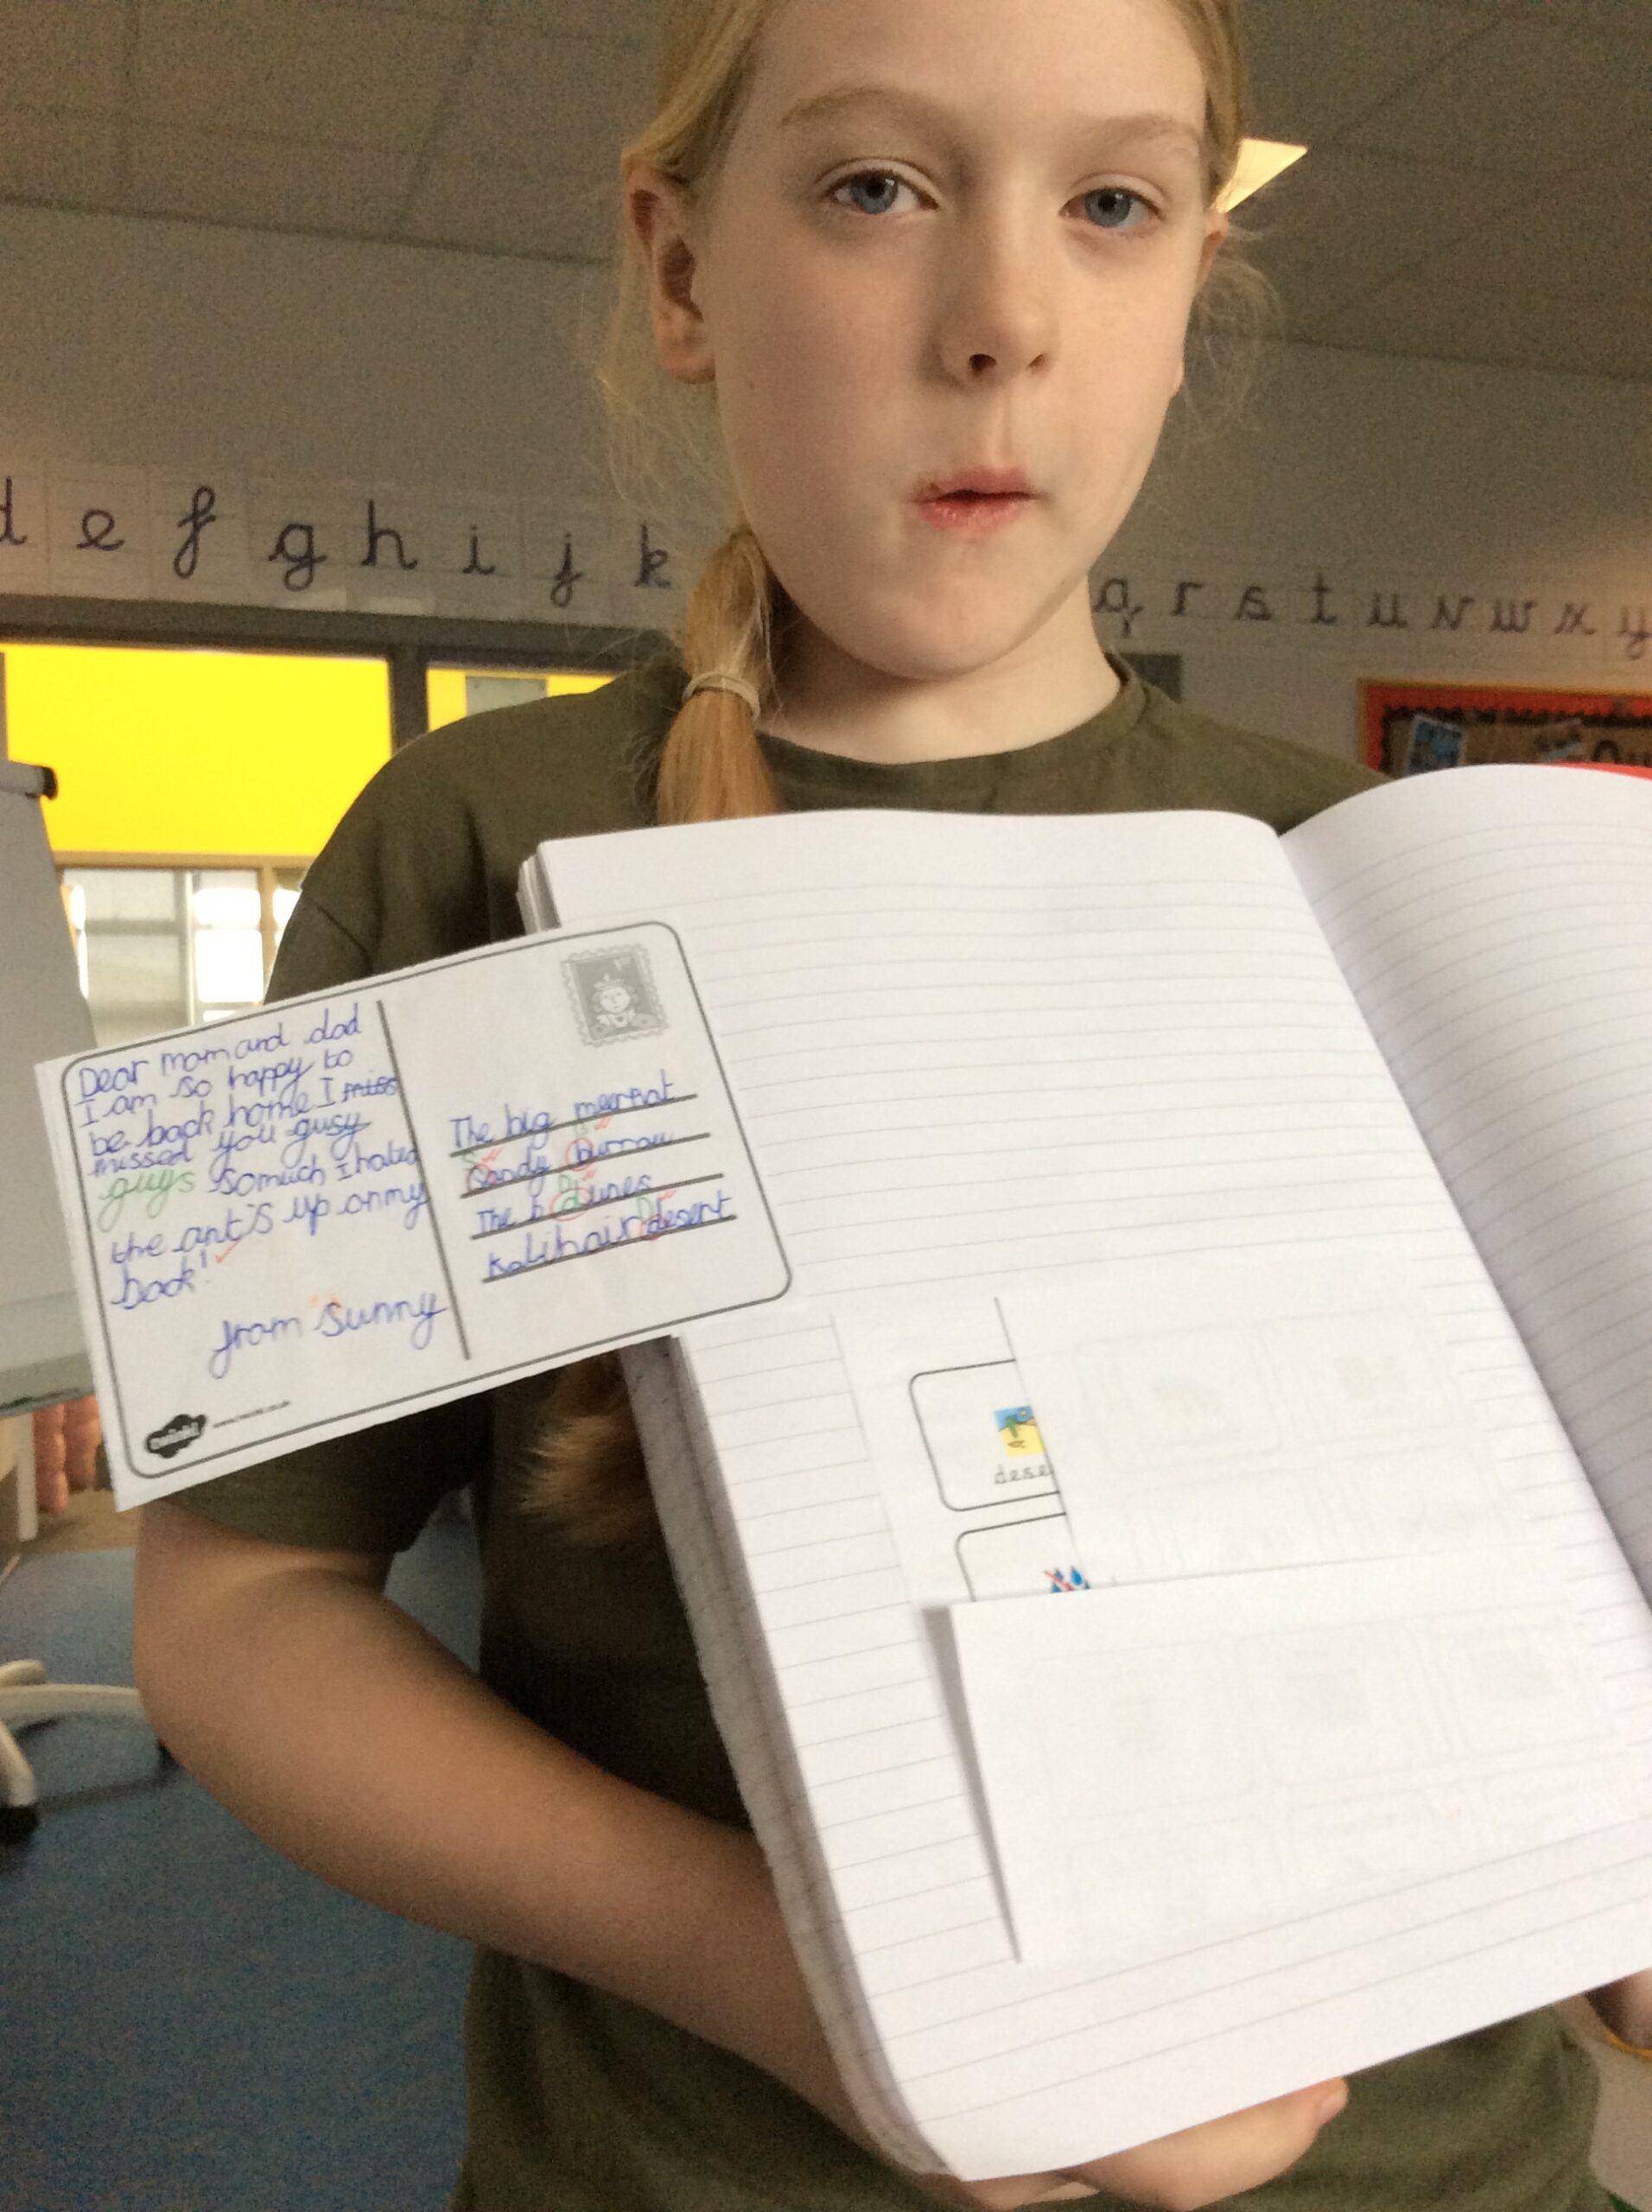 d e f g h i j k
q r s t u v w x y
Dear mom and dad
I am so happy to
be back home I miss
missed you gusy
guys somuch I hated
the ant's up onmy
back!
from Sunny
The big meerkat
Sandy burrow
The D dunes
Kalihair Desert
twinkl
www.twinkl.co.uk
dese
Our